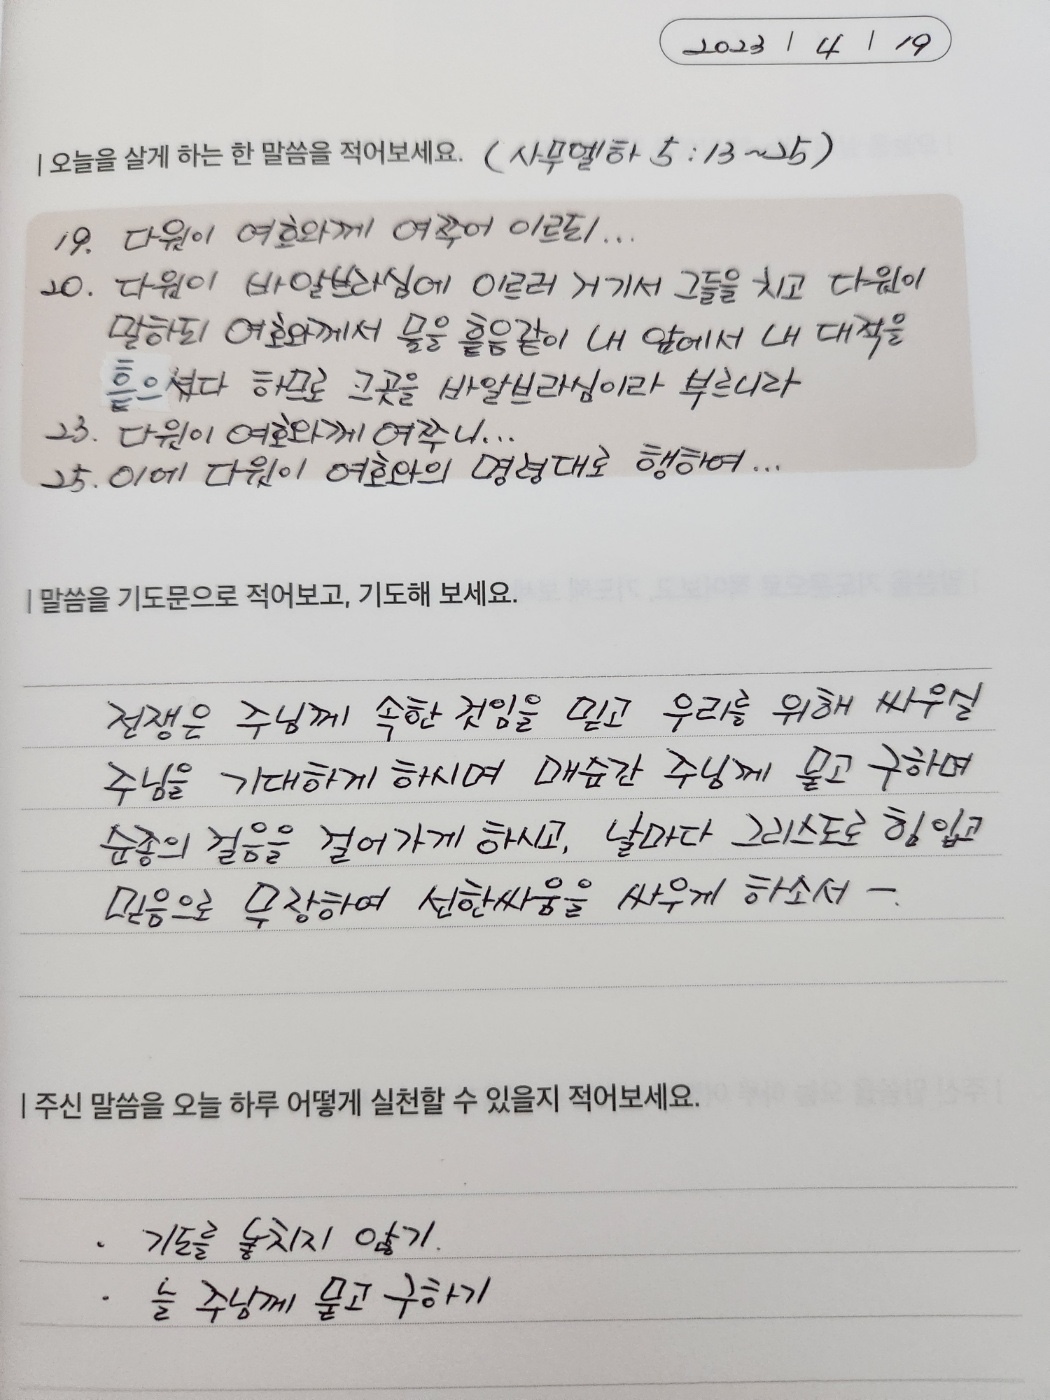 2023 | 4 | 19
| 오늘을 살게 하는 한 말씀을 적어보세요. (사무엘하 5:13~25)
19. 다윗이 여호와께 여쭈어 이르되...
20. 다윗이 바알브라심에 이르러 거기서 그들을 치고 다윗이
말하되 여호와께서 물을 흩음같이 내 앞에서 내 대적을
흩으셨다 하므로 그곳을 바알브라심이라 부르니라
23. 다윗이 여호와께 여쭈니...
25. 이에 다윗이 여호와의 명령대로 행하여...
| 말씀을 기도문으로 적어보고, 기도해 보세요.
전쟁은 주님께 속한 것임을 믿고 우리를 위해 싸우실
주님을 기대하게 하시며 매순간 주님께 묻고 구하며
순종의 걸음을 걸어가게 하시고, 날마다 그리스도로 힘입고
믿음으로 무장하여 선한싸움을 싸우게 하소서 -.
| 주신 말씀을 오늘 하루 어떻게 실천할 수 있을지 적어보세요.
· 기도를 놓치지 않기.
· 늘 주님께 묻고 구하기